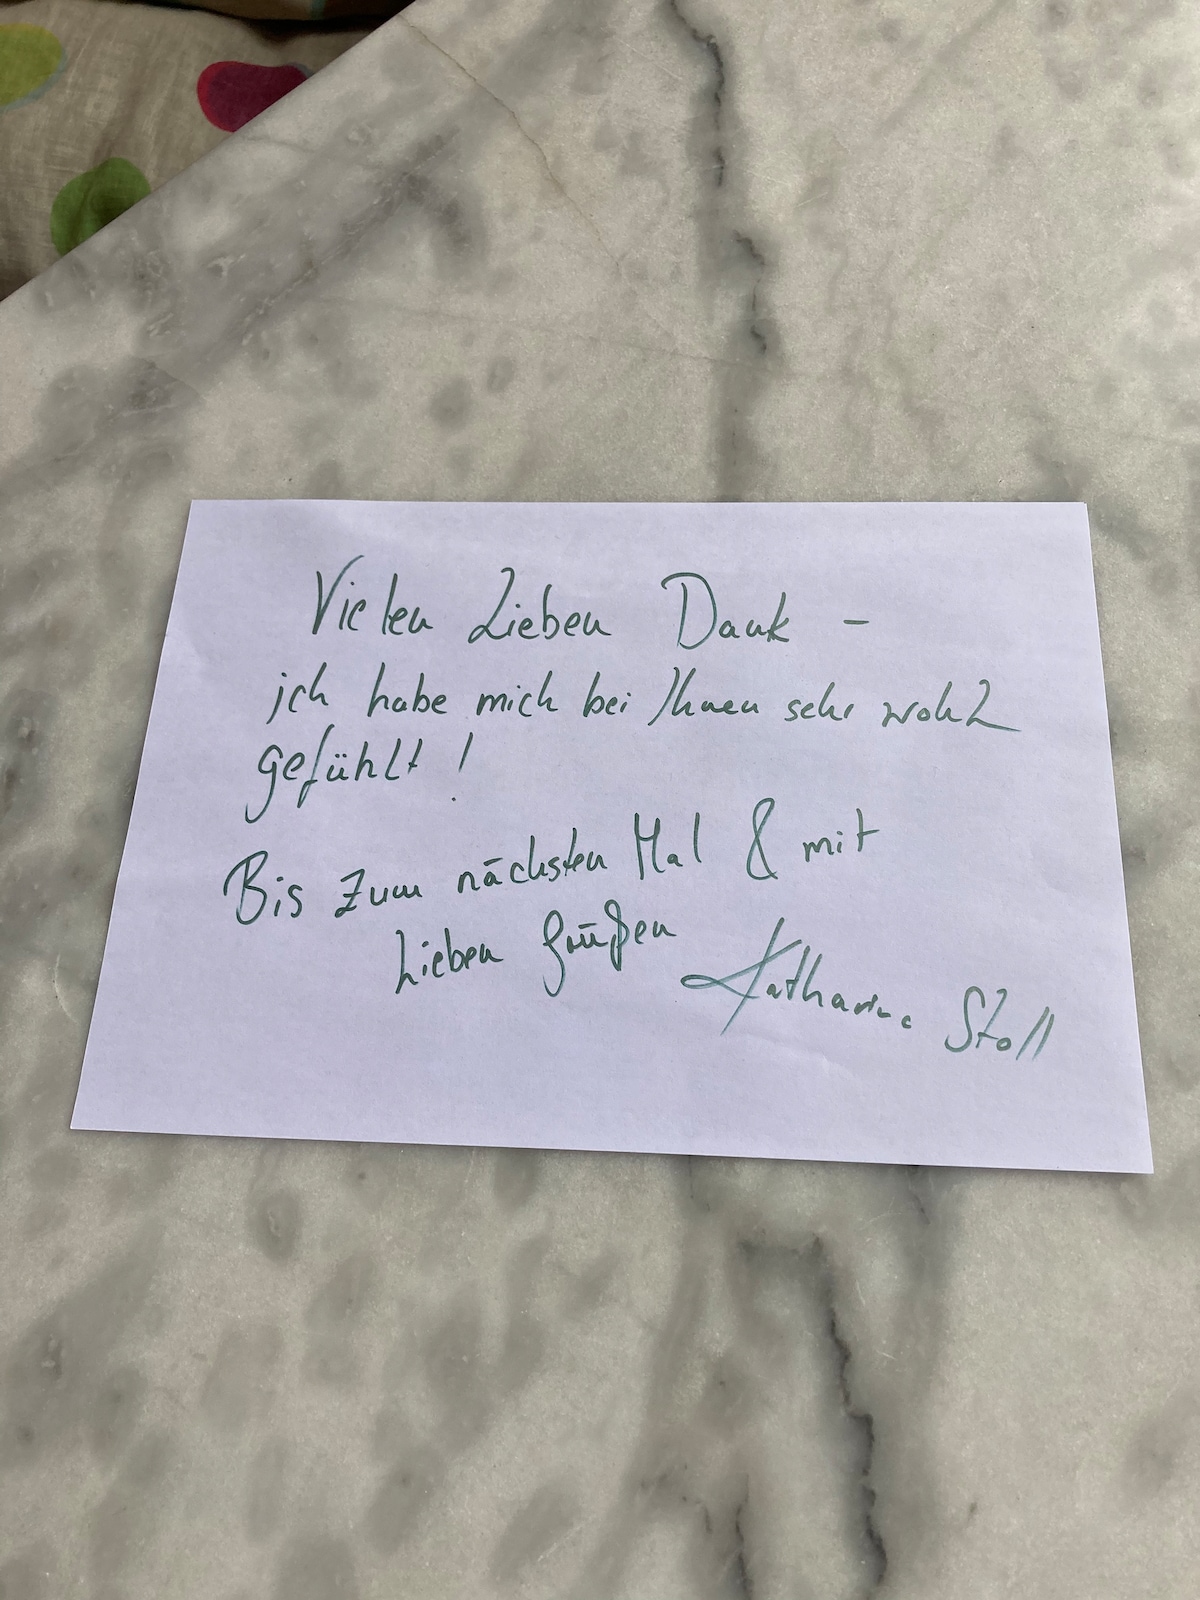 Vielen Lieben Dank –
ich habe mich bei Ihnen sehr wohl
gefühlt!
Bis zum nächsten Mal & mit
Lieben Grüßen Katharina Stoll